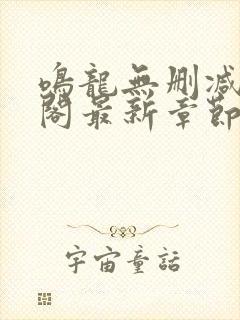 鳴龍無刪減
閣最新章節
宇宙童話